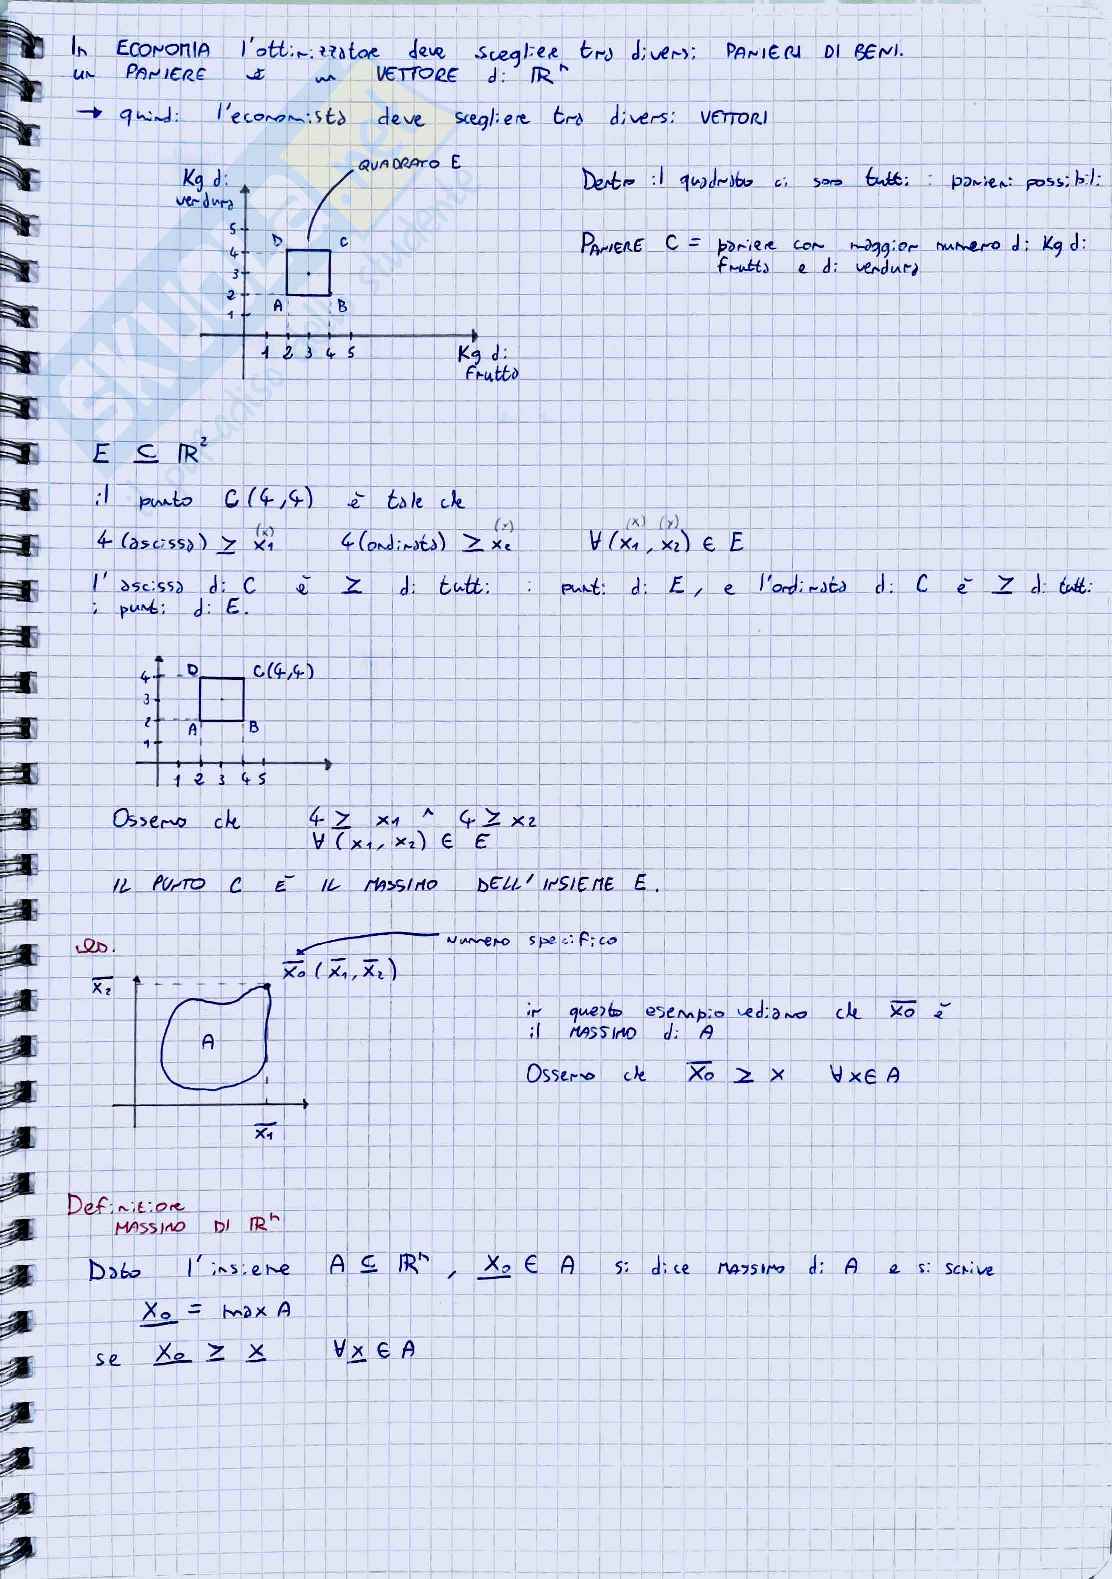 In ECONOMIA l'ottimizzatore deve scegliere tra diversi PANIERI DI BENI.
un PANIERE è un VETTORE di ℝⁿ
→ quindi l'economista deve scegliere tra diversi VETTORI
QUADRATO E
Kg di
verdura
Dentro il quadrato ci sono tutti i panieri possibili
5
D C
4
PANIERE C = paniere con maggior numero di Kg di
frutta e di verdura
3
2
A B
1
1 2 3 4 5
Kg di
frutta
E ⊆ ℝ²
il punto C(4,4) è tale che
(x) (y) (x) (y)
4 (ascissa) ≥ x₁ 4(ordinata) ≥ x₂ ∀(x₁, x₂) ∈ E
l'ascissa di C è ≥ di tutti i punti di E, e l'ordinata di C è ≥ di tutti
i punti di E.
4 D C(4,4)
3
2
A B
1
1 2 3 4 5
Ossermo che 4 ≥ x₁ ^ 4 ≥ x₂
∀(x₁, x₂) ∈ E
IL PUNTO C È IL MASSIMO DELL'INSIEME E.
es.
numero specifico
x̅₀ (x̅₁, x̅₂)
x̅₂
in questo esempio vediamo che x̅₀ è
il MASSIMO di A
A
Ossermo che x̅₀ ≥ x ∀x∈A
x̅₁
Definizione
MASSIMO DI ℝⁿ
Dato l'insieme A ⊆ ℝⁿ, x₀ ∈ A si dice MASSIMO di A e si scrive
x₀ = max A
se x₀ ≥ x ∀x ∈ A
SKUOLA.net